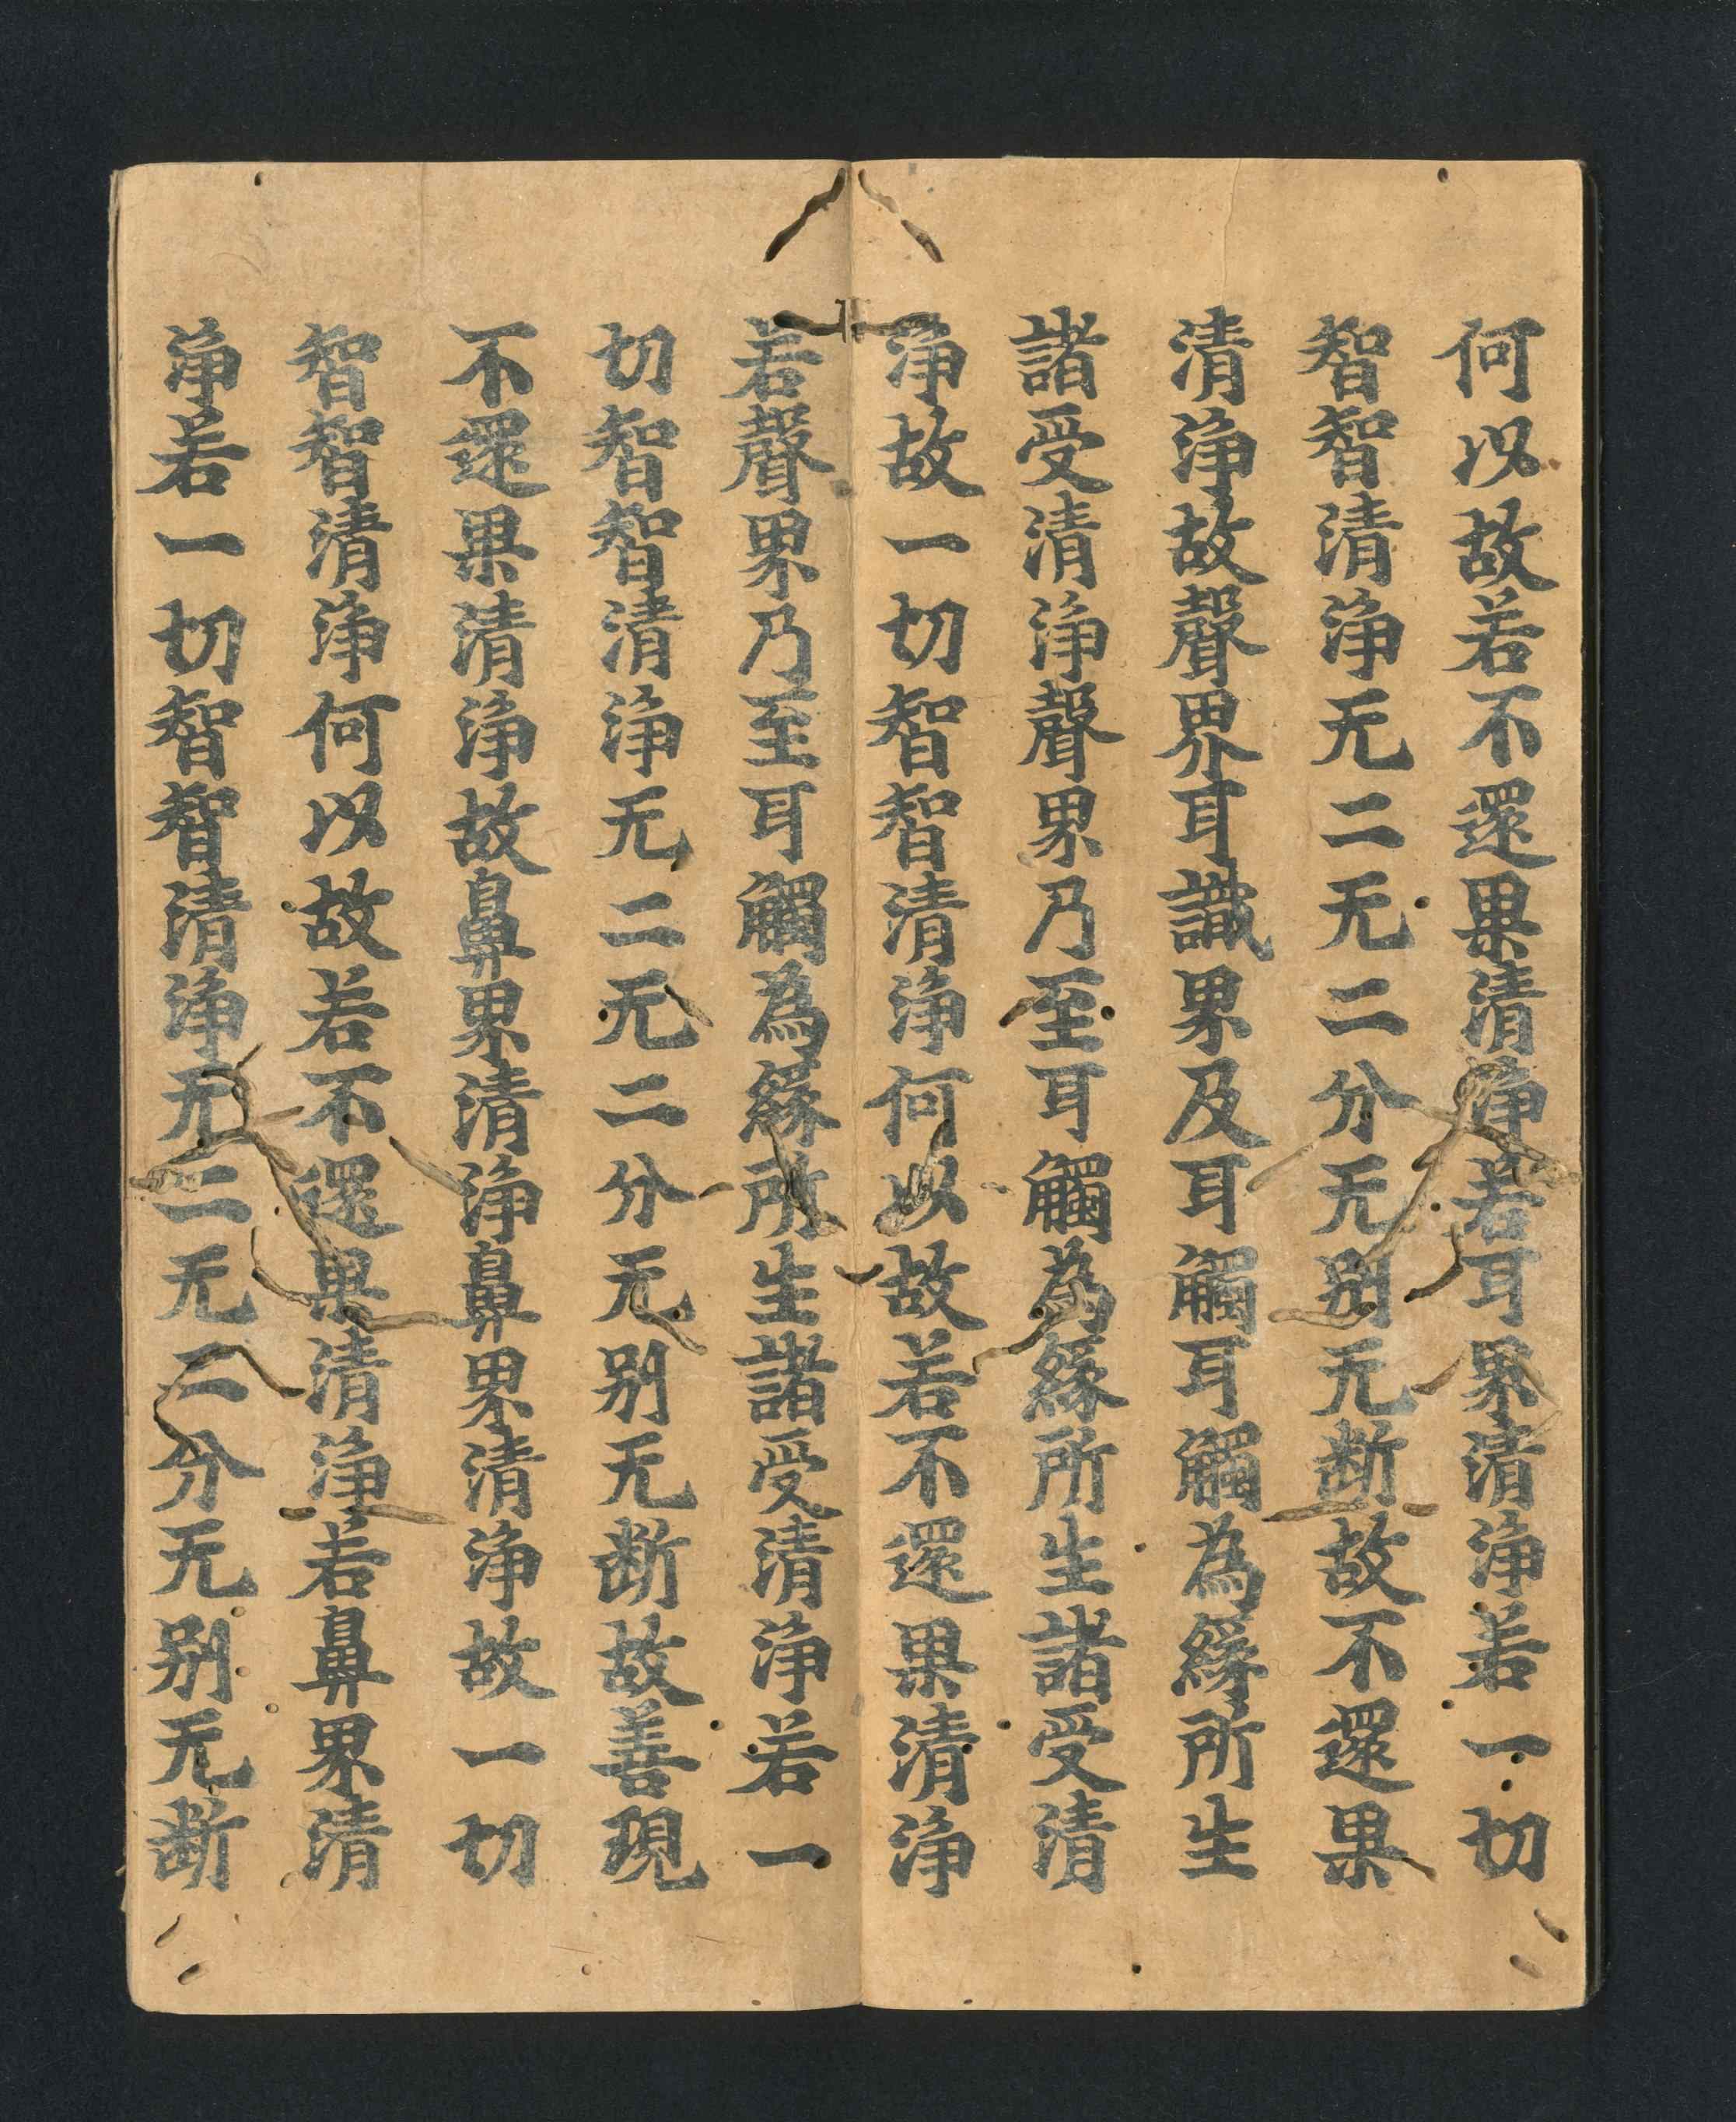 何以故若不還果清淨若耳界清淨若一切
智智清淨无二无二分无别无断故不還果
清淨故聲界耳識界及耳觸耳觸為緣所生
諸受清淨聲界乃至耳觸為緣所生諸受清
淨故一切智智清淨何以故若不還果清淨
若聲界乃至耳觸為緣所生諸受清淨若一
切智智清淨无二无二分无别无断故善現
不還果清淨故鼻界清淨鼻界清淨故一切
智智清淨何以故若不還果清淨若鼻界清
淨若一切智智清淨无二无二分无别无断